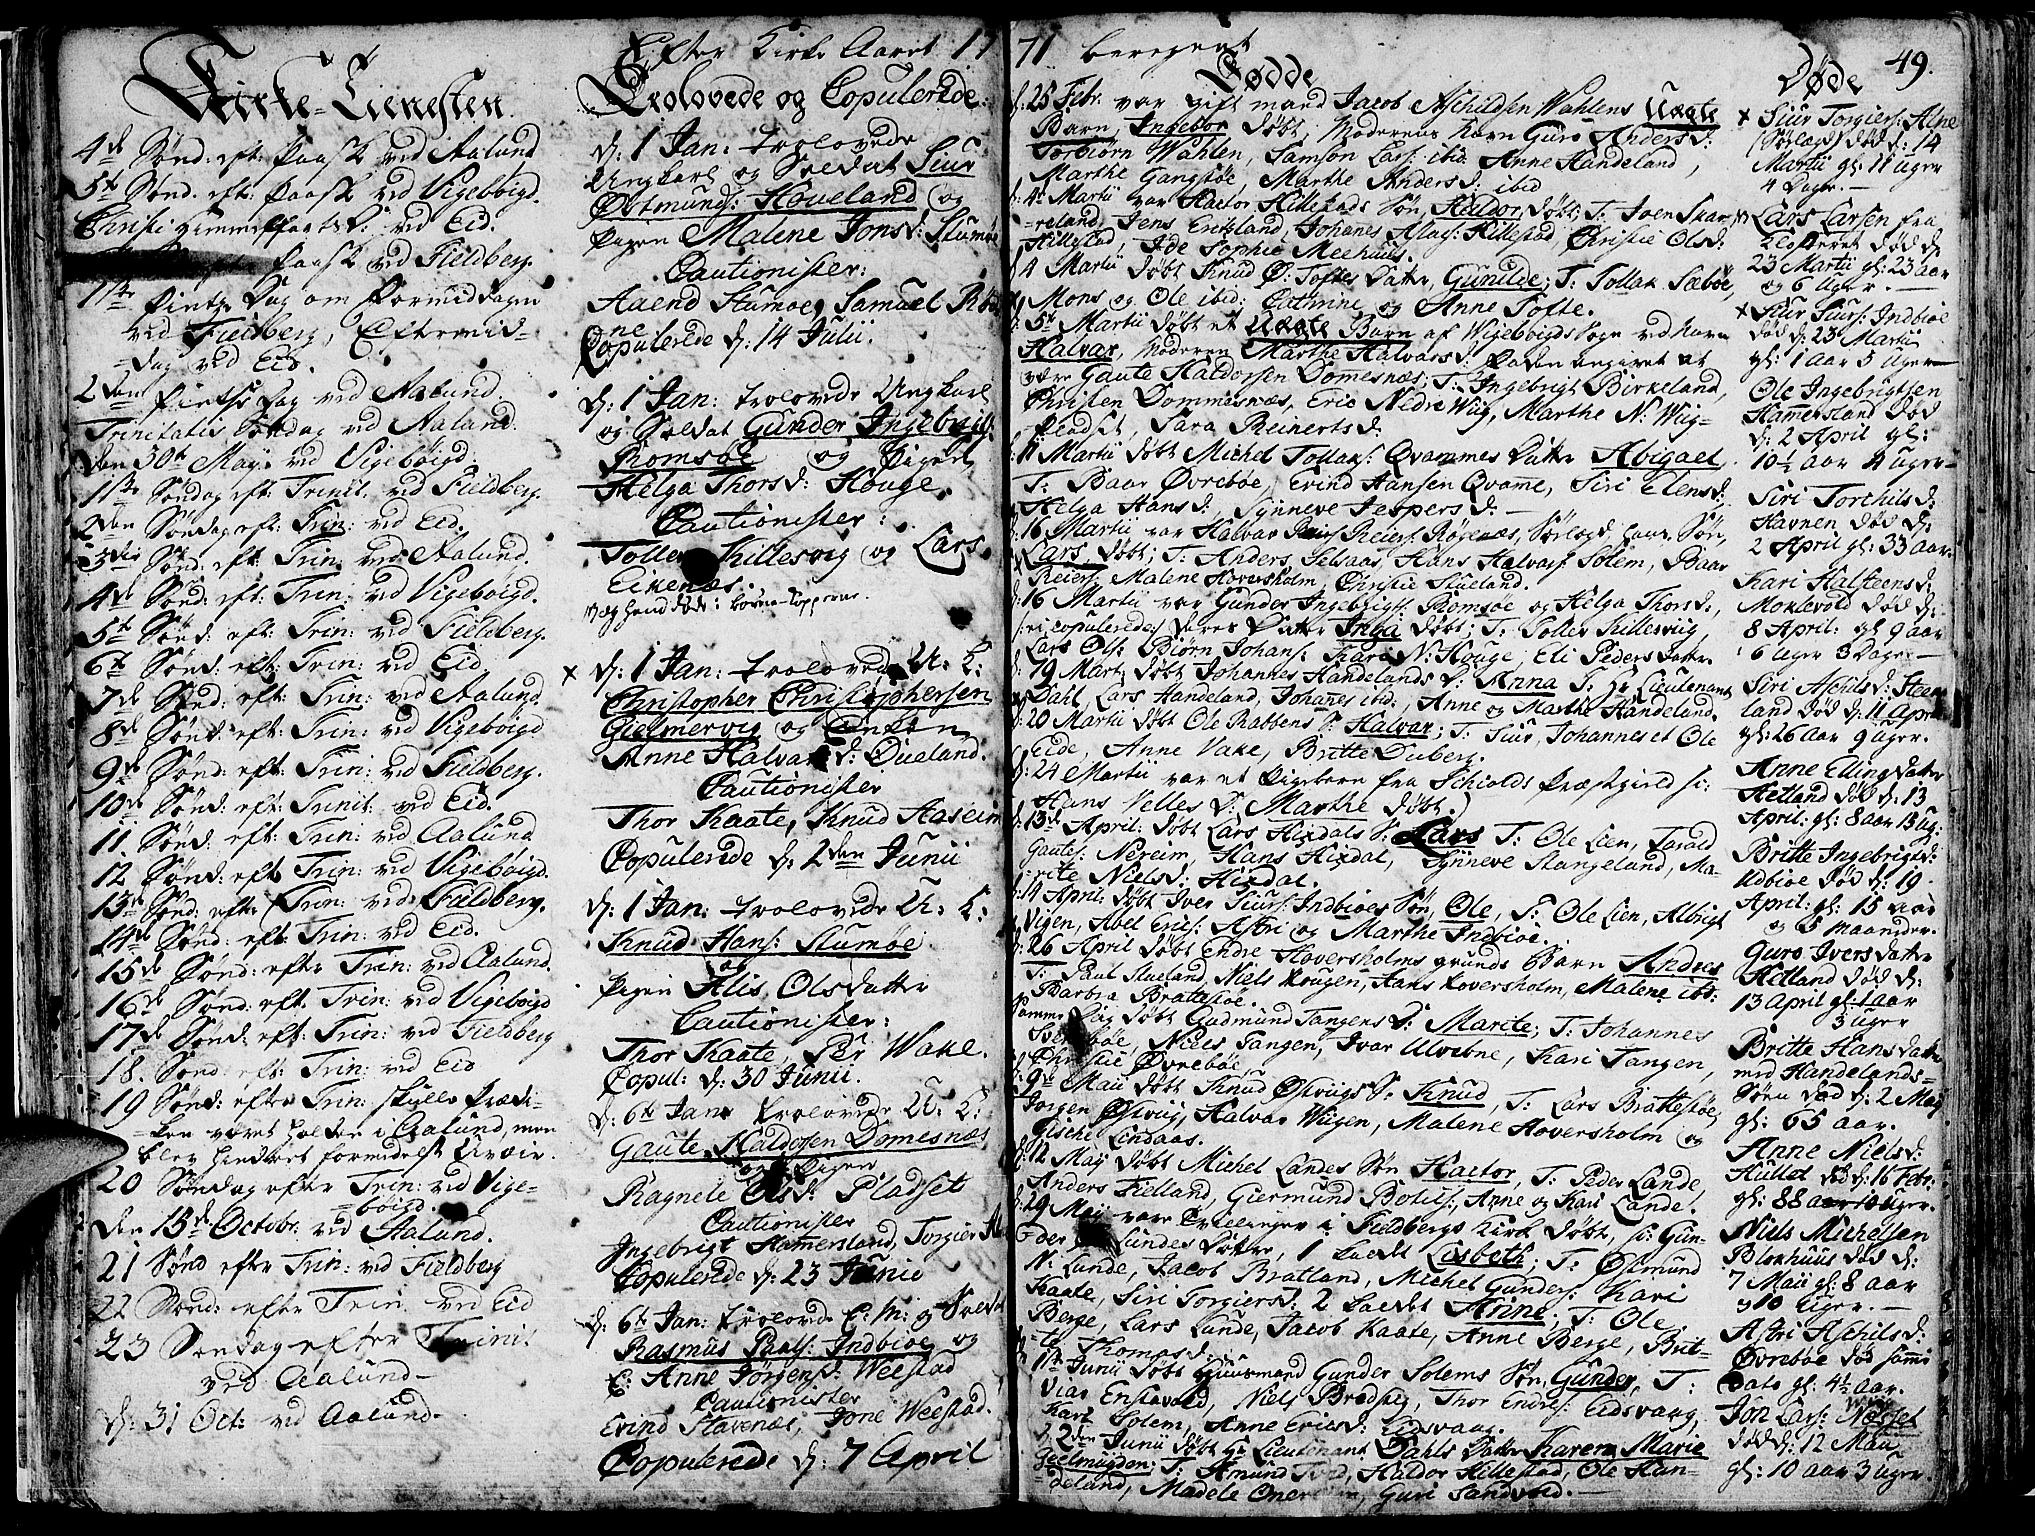 Efter Kirke Aaret 1771 beregnet
49.
Kirke-Tienesten.
4de Sønd: eft: Paask ved Aalund
5te Sønd: eft: Paask ved Vigebøigd.
Christi Himmelfartsd: ved Eid.
Paask ved Fieldberg.
1ste Pintze Dag om Formiddagen
ved Fieldberg, Eftermid-
=dag ved Eid.
2den Pintze Dag ved Aalund.
Trinitatis Søndag ved Aalund.
den 30te Maji ved Vigebøigd.
1ste Søndag eft: Trinit: ved Fieldberg.
2den Søndag eft: Trin: ved Eid.
3die Sønd: eft: Trin: ved Aalund.
4de Sønd: eft: Trin: ved Vigebøigd.
5te Sønd: eft: Trin: ved Fieldberg.
6te Sønd: eft: Trin: ved Eid.
7de Sønd: eft: Trin: ved Aalund.
8de Sønd: eft: Trin: ved Vigebøigd
9de Sønd: eft: Trin: ved Fieldberg.
10de Sønd: eft: Trinit: ved Eid.
11 Sønd: eft: Trin: ved Aalund
12 Sønd: eft: Trin: ved Vigebøigd.
13de Sønd: efter Trin: ved Fieldberg.
14de Sønd: eft: Trin: ved Eid.
15de Sønd: efter Trin: ved Aalund.
16de Sønd: eft: Trin: ved Vigebøigd
17de Sønd: eft: Trin: ved Fieldberg
18. Sønd: eft: Trin: ved Eid
19 Sønd: efter Trin: skulle Prædi-
=ken været holden i Aalund, men
blev hindret formedelst Uveir.
20 Søndag efter Trin: ved Vige-
=bøigd.
den 15de Octobr: ved Aalund.
21 Sønd efter Trin: ved Fieldberg
22 Sønd: efter Trin: ved Eid
23 Søndag efter Trinit:
ved Aalund-
d: 31 Oct: ved Aalund.
Trolovede og Copulerede:
d: 1 Jan: trolovede
Ungkarl og Soldat Siur
Østmunds: Hoveland og
Pigen Malene Jonsd: Stumøe
Cautionister:
Aaend Stumoe, Samuel
Copulerede d: 14 Julii.
d: 1 Jan: trolovede Ungkarl
og Soldat Gunder Ingebrigts:
Romsøe og Pigen
Helga Thorsd: Houge.
Cautionister:
Tolle Killesvig og Lars
Eikenæs.
d: 1 Jan: trolovede U: K:
Christopher Christophersen
Gielmervig og Enken
Anne Halvarsd: Øueland.
Cautionister
Thor Kaate, Knud Aaseim
Copulerede d: 2den Junii
d: 1 Jan: trolovede U: K:
Knud Hans: Stumøe
og
Pigen Alis Olsdatter
Cautionister:
Thor Kaate, Per Wake.
Copul: d: 30 Junii.
d: 6te Jan: trolovede U: K:
Gaute Haldorsen Domesnæs
og Pigen
Ragnele Olsd: Pladset
Cautionister
Ingebrigt Hamersland, Torgier
Copulerede d: 23 Junii
d: 6te Jan: trolovede E: M: og Soldat
Rasmus Paals: Indbiøe og
E: Anne Jørgensd: Weestad
Cautionister
Erind Stavenæs, Jone Weestad.
Copulerede d: 7 April
Fødde
d: 25 Febr. var gift mand Jacob Aschildsen Wahlens Uægte
Barn, Ingebor døbt; Moderens Navn Guro Andersd:
Torbiørn Wahlen, Samson Lars: ibid. Anne Handeland,
Marthe Gangstøe, Marthe Andersd: ibid
d: 4 Martii var Hactor Hillestads Søn, Haldor, døbt; T: Joen Skar-
=reland, Jens Eritzland, Johanes Aslas: Hillestad, Christie Olsd:
Hillestad, Ide Sophie Meehuus.
d: 4 Martii døbt Knud Ø: Toftes Datter, Gunilde; T: Tollak Sæbøe,
Mons og Ole ibid: Cathrine og Anne Tofte.
d: 5te Martii døbt et Uægte Barn af Wigebøigds Sogn ved Navn
Halvar, Moderen Marthe Halvarsd: Faderen angivet at
være Gaute Haldorsen Domesnæs; T: Ingebrigt Birkeland,
Christen Dommesnæs, Eric Nedre Wiig, Marthe N: Wiig-
Pladset, Sara Reinertsd:
d: 11 Martii døbt Michel Tollaks: Qvammes Datter Abigael
T: Baar Øvrebøe, Erind Hansen Qvame, Siri Elensd:
Helga Hansd:, Synneve Jespersd: -
d: 16 Martii var Halvar Reiers: Røgenæs, Sørlagd hans Søn,
Lars, døbt; T: Anders Selsaas, Hans Halvars: Solem, Baar
Reiers: Malene Hoversholm, Christie Stueland.
d: 16 Martii var Gunder Ingebrigts: Romsøe og Helga Thorsd:,
Copulerede, deres Datter Inga døbt; T: Tolles Killesviig,
Lars Ols: Biørn Johans: Kari N: Houge, Eli Peders Datter
d: 19 Mart: døbt Johannes Handelands D: Anna T: Hr Lieutenant
Dahl, Lars Handeland, Johanes ibid:, Anne og Marthe Handeland.
d: 20 Martii døbt Ole Rabbens S: Halvar; T: Siur, Johannes et Ole
Eide, Anne Vake, Britte Duberg.
d: 24 Martii var et Pigebarn fra Schiolds Præstegield s:
Hans Velles D: Marthe døbt.
d: 13de April: døbt Lars Hixdals S: Lars T: Ole Lien, Tarald
Gautes: Nereim, Hans Hixdal, Synneve Stangeland, Ma-
=rite Nielsd: Hixdal.
d: 14 April: døbt Iver Siurs: Indbiøes Søn, Ole, T: Ole Lien, Albrigt
Vigen, Abel Erics: Astri og Marthe Indbiøe.
d: 26 April døbt Endre Hoversholms grunds Barn Andres
T: Paul Stueland, Niels Hougen, Hans Hoversholm, Malene ibd:
Barbra Brattestøe.
Samme Dag døbt Gudmund Tangens D: Marite; T: Johannes
Niels Tangen, Ivar Ulvebne, Kari Tangen,
Christie Øvrebøe.
d: 9de Maii døbt Knud Østvigs S: Knud, T: Lars Brattestøe,
Jørgen Østviig, Halvar Wiigen, Malene Hoversholm og
Gische Lindaas.
d: 12 Maij døbt Michel Landes Søn Hactor, T: Peder Lande,
Anders Fielland, Giermund Botles: Anne og Kari Lande.
d: 29 Maij vare Tvillinger i Fieldbergs Kirke døbt, s: Gun-
der Lundes Døttre, 1 kaldet Lisbeth; T: Østmund
N: Lunde, Jacob Bratland, Michel Gunders: Kari
Kaate, Siri Torgiersd: 2 kaldet Anne, T: Ole
Berge, Lars Lunde, Jacob Kaate, Anne Berge, Brit-
=te Thomasd:
d: 11te Junii døbt Huusmand Gunder Solems Søn, Gunder, T:
Viar Enstavold, Niels Bredsteg, Thor Endres: Eidsvaag,
Kari Solem, Anne Ericsd: Eidsvaag.
d: 2den Junii døbt Hr Lieutenant Dahls Datter Karen Marie
Geelmuyden: T: Amund, Haldor Hillestad, Ole Han-
deland, Madele, Guri Sandvold. -
Døde
Siur Torgiers: Alne
(Sørlagd) død d: 14
Martii gl: 11 Uger
4 Dage. -
Lars Larsen fra
Closteret død d:
23 Martii gl: 23 aar
og 6 Uger. -
Siur Siurs: Indbiøe
død d: 23 Martii
gl: 1 Aar 5 Uger
Ole Ingebrigtsen
Hamersland død
d: 2 April gl:
10½ aar 4 Uger-
Siri Torchilsd:
Havnen død d:
2 April gl: 33 aar.
Kari Halsteensd:
Moklevold død d:
8 April: gl 9 aar
6 Uger 3 Dage. -
Siri Aschilsd: Steen
land død d: 11 April
gl: 26 aar 9 Uger.
Anne Ellingsdatter
Hetland død d: 13
April: gl: 8 aar 13 Ug:
Britte Ingebrigtsd:
Udbiøe død d: 19
April: gl: 15 aar
og 5 maaneder.
Guro Ivers datter
Hetland død d:
13 April gl 1 aar
3 Uger
Britte Hans datter
med Handelands-
Søen død d: 2 Maij
gl: 65 aar.
Anne Nielsd:
Hullet død d: 16 Febr:
gl: 88 aar 10 Uger.
Niels Michelsen
Blokhuus død d:
7 Maii gl: 8 aar
og 10 Uger. -
Astri Aschilsd:
Øvrebøe død samme
Dato gl: 4½ Aar.
Jon Lars: Næsset
død d: 12 Maii
gl: 10 aar 3 Uger.